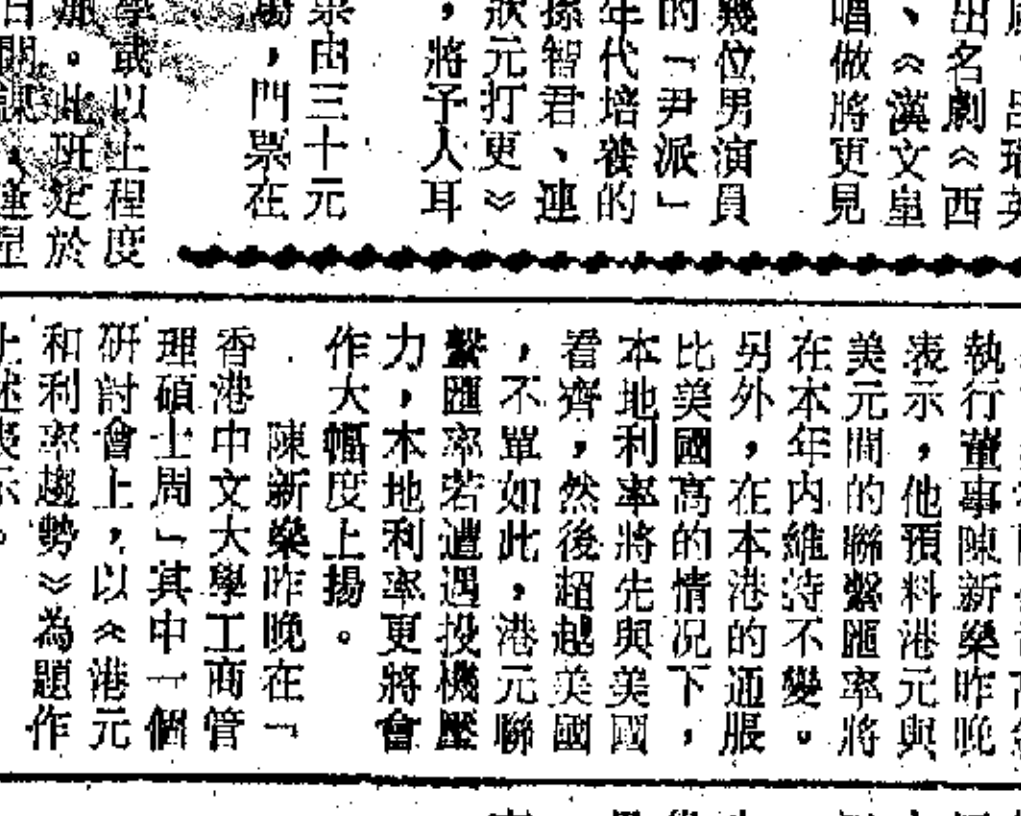 出名劇《西
、《漢文皇
唱做將更見
幾位男演員
的「尹派」
年代培養的
孫智君、連
狀元打更》
，將予人耳
票由三十元
場，門票在
學或以上程度
。此班定於
執行董事陳新燊昨晚
表示，他預料港元與
美元間的聯繫匯率將
在本年內維持不變。
另外，在本港的通脹
比美國高的情況下，
本地利率將先與美國
看齊，然後超越美國
，不單如此，港元聯
繫匯率若遭遇投機壓
力，本地利率更將會
作大幅度上揚。
陳新燊昨晚在「
香港中文大學工商管
理碩士周」其中一個
研討會上，以《港元
和利率趨勢》為題作
上述表示。